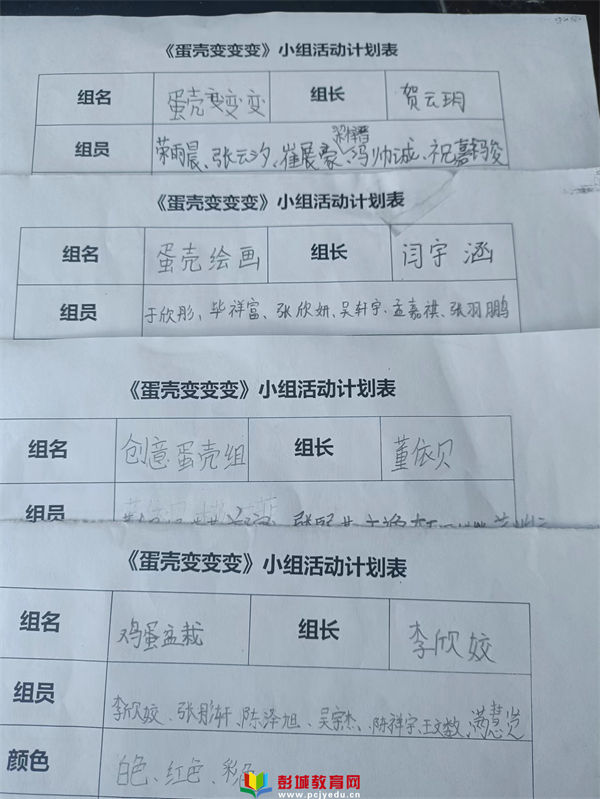 《蛋壳变变变》小组活动计划表
组名 蛋壳变变变 组长 贺云玥
组员 荣雨晨、张云汐、崔展豪、冯帅诚、祝嘉骏
《蛋壳变变变》小组活动计划表
组名 蛋壳绘画 组长 闫宇涵
组员 于欣彤、毕祥富、张欣妍、吴轩宇、孟嘉祺、张羽鹏
《蛋壳变变变》小组活动计划表
组名 创意蛋壳组 组长 董依贝
组员
《蛋壳变变变》小组活动计划表
组名 鸡蛋盆栽 组长 李欣姣
组员 李欣姣、张彤轩、陈泽旭、吴宗杰、陈祥宇、王文
颜色 白色、红色、彩色
彭城教育网
www.pcjyedu.cn